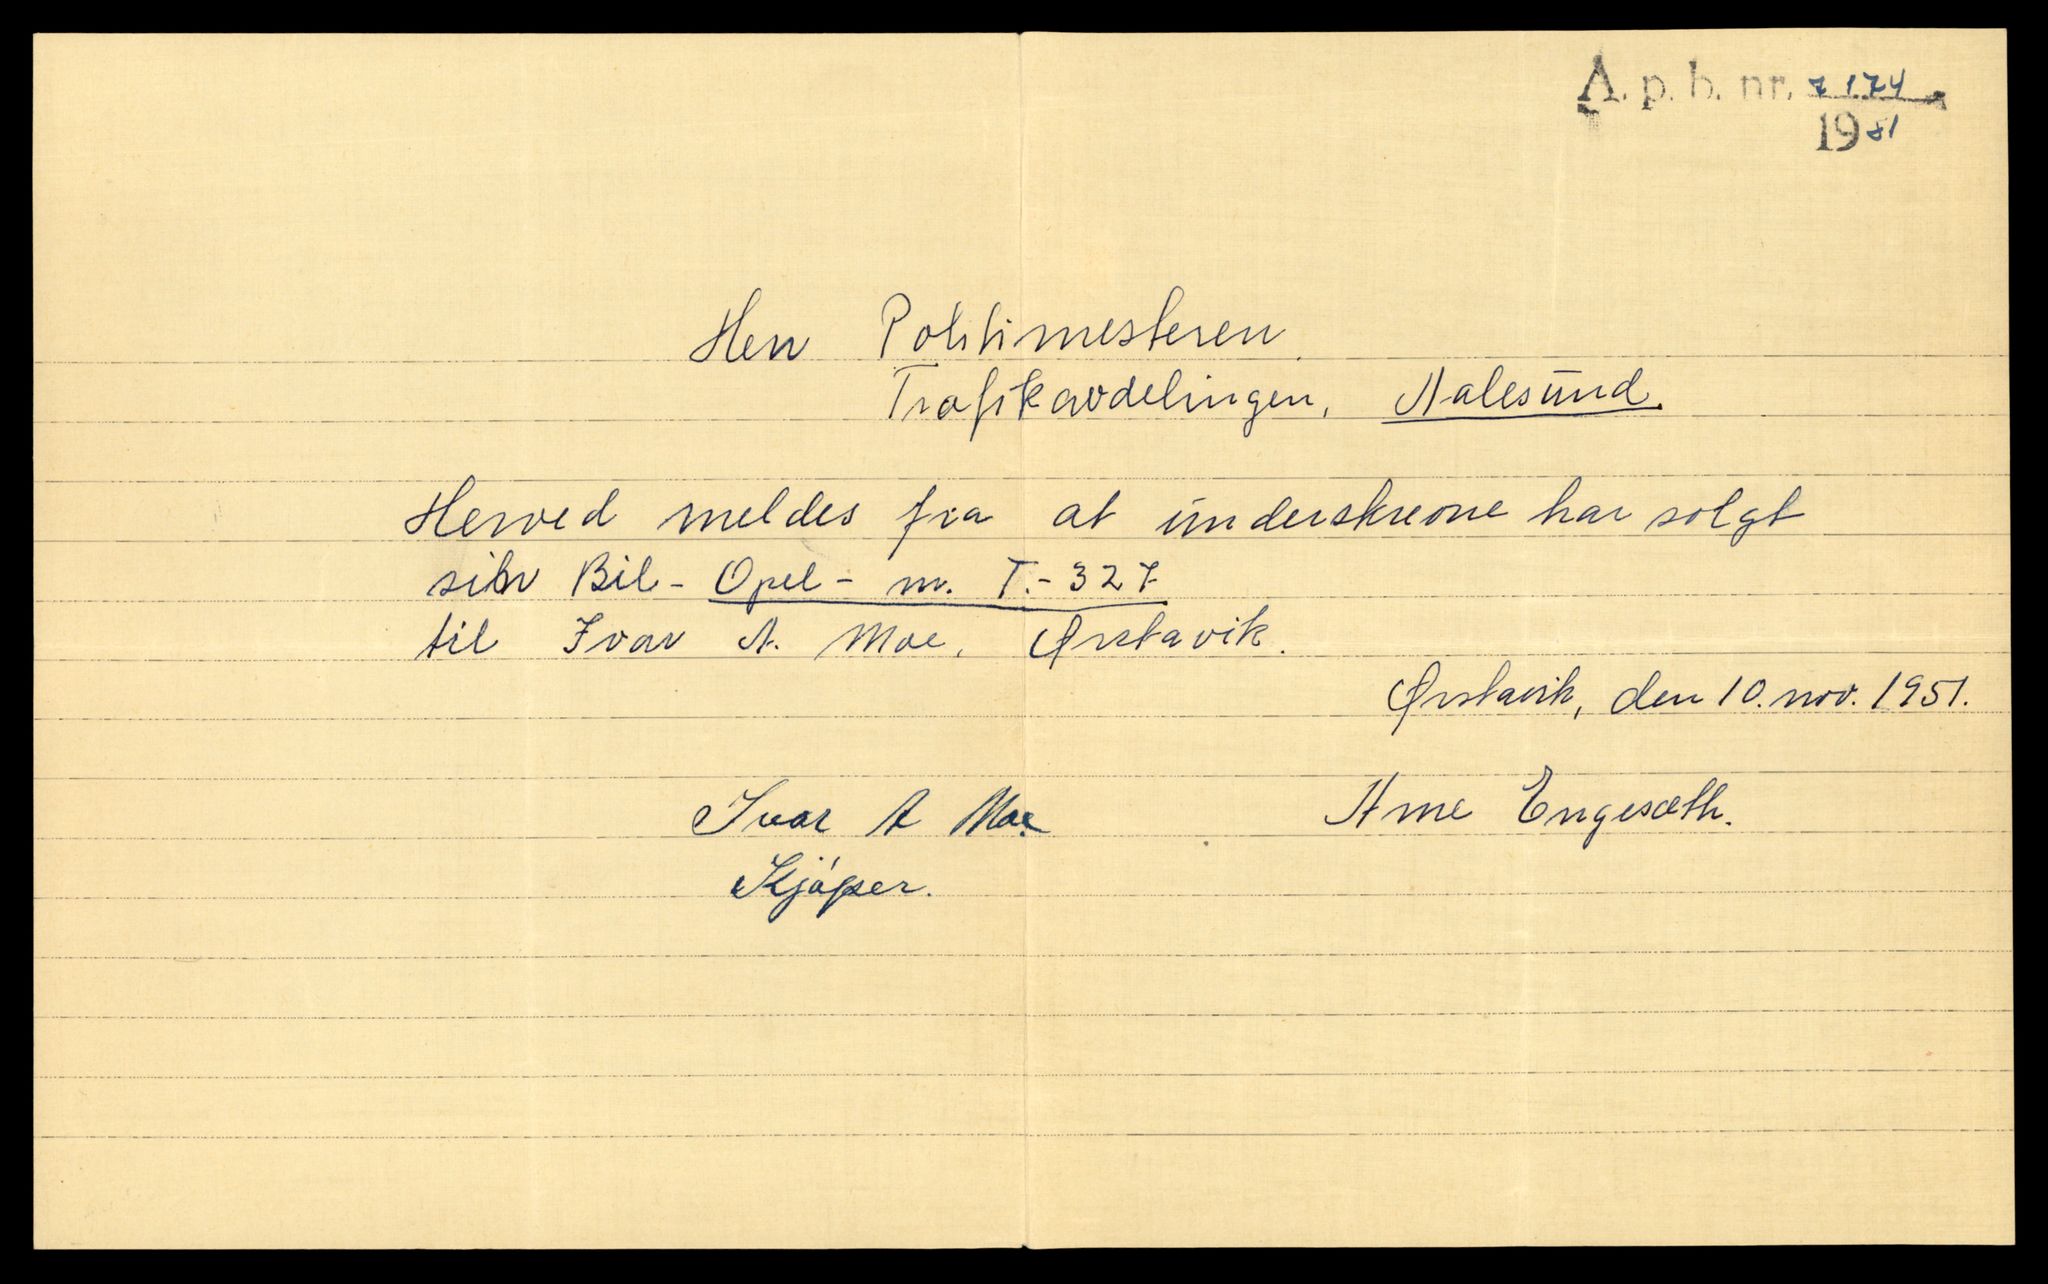 A. p. b. nr. 7174
1951
Herr Politimesteren.
Trafikavdelingen, Aalesund.
Herved meldes fra at underskrevne har solgt
sin Bil - Opel - nr. T.-327
til Ivar A. Moe, Ørstavik.
Ørstavik, den 10. nov. 1951.
Ivar A Moe. Arne Engesæth.
Kjøper.